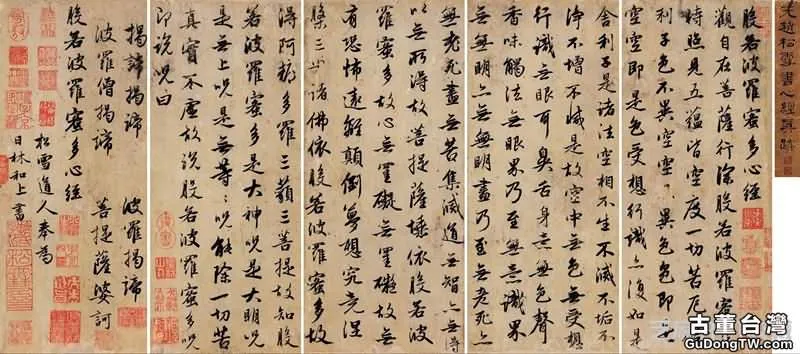 元趙松雪書心經真跡
般若波羅蜜多心經
觀自在菩薩行深般若波羅蜜多
時照見五蘊皆空度一切苦厄舍
利子色不異空空不異色色即是
空空即是色受想行識亦復如是
舍利子是諸法空相不生不滅不垢不
淨不增不減是故空中無色無受想
行識無眼耳鼻舌身意無色聲
香味觸法無眼界乃至無意識界
無無明亦無無明盡乃至無老死亦
無老死盡無苦集滅道無智亦無得
以無所得故菩提薩埵依般若波
羅蜜多故心無罣礙無罣礙故無
有恐怖遠離顛倒夢想究竟涅
槃三世諸佛依般若波羅蜜多故
得阿耨多羅三藐三菩提故知般
若波羅蜜多是大神咒是大明咒
是無上咒是無等〻咒能除一切苦
真實不虛故說般若波羅蜜多咒
即說咒曰
揭諦揭諦 波羅揭諦
波羅僧揭諦 菩提薩婆訶
般若波羅蜜多心經
松雪道人奉為
日林和上書
古董台灣
GuDongTW.com